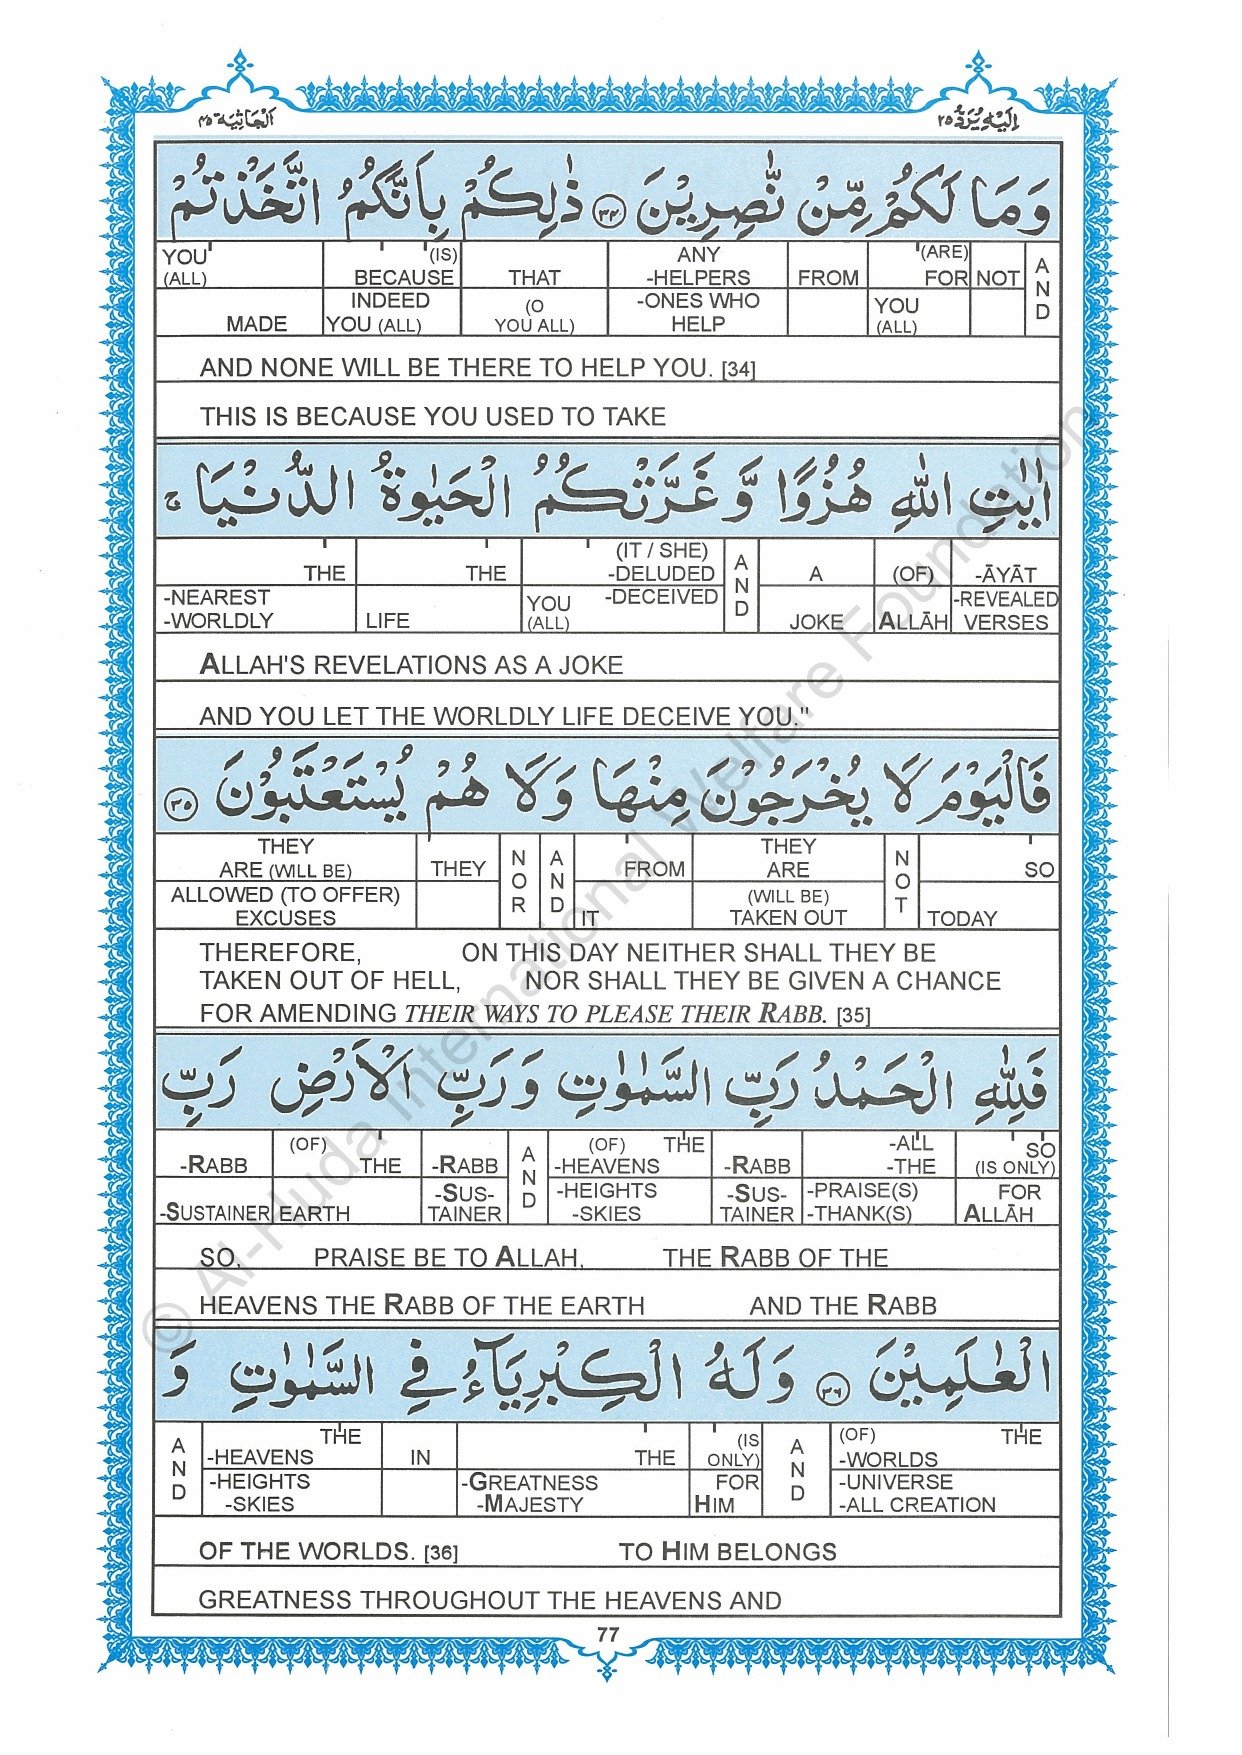 الجاثية ٤٥
إليه يرد ٢٥
وَمَا لَكُمْ مِّنْ نّٰصِرِيْنَ ٣٤ ذٰلِكُمْ بِاَنَّكُمُ اتَّخَذْتُمْ
YOU (ALL) MADE
(IS) BECAUSE INDEED YOU (ALL)
THAT (O YOU ALL)
ANY -HELPERS -ONES WHO HELP
FROM
(ARE) FOR YOU (ALL)
NOT
AND
AND NONE WILL BE THERE TO HELP YOU. [34]
THIS IS BECAUSE YOU USED TO TAKE
اٰيٰتِ اللّٰهِ هُزُوًا وَّغَرَّتْكُمُ الْحَيٰوةُ الدُّنْيَا ۚ
THE -NEAREST -WORLDLY
THE LIFE
(IT / SHE) -DELUDED -DECEIVED YOU (ALL)
AND
A JOKE
(OF) ALLĀH
-ĀYĀT -REVEALED VERSES
ALLAH'S REVELATIONS AS A JOKE
AND YOU LET THE WORLDLY LIFE DECEIVE YOU."
فَالْيَوْمَ لَا يُخْرَجُوْنَ مِنْهَا وَلَا هُمْ يُسْتَعْتَبُوْنَ ٣٥
THEY ARE (WILL BE) ALLOWED (TO OFFER) EXCUSES
THEY
NOR
AND
FROM IT
THEY ARE (WILL BE) TAKEN OUT
NOT
SO TODAY
THEREFORE, ON THIS DAY NEITHER SHALL THEY BE
TAKEN OUT OF HELL, NOR SHALL THEY BE GIVEN A CHANCE
FOR AMENDING THEIR WAYS TO PLEASE THEIR RABB. [35]
فَلِلّٰهِ الْحَمْدُ رَبِّ السَّمٰوٰتِ وَرَبِّ الْاَرْضِ رَبِّ
-RABB -SUSTAINER
(OF) THE EARTH
-RABB -SUS-TAINER
AND
(OF) THE -HEAVENS -HEIGHTS -SKIES
-RABB -SUS-TAINER
-ALL -THE -PRAISE(S) -THANK(S)
SO (IS ONLY) FOR ALLĀH
SO, PRAISE BE TO ALLAH, THE RABB OF THE
HEAVENS THE RABB OF THE EARTH AND THE RABB
الْعٰلَمِيْنَ ٣٦ وَلَهُ الْكِبْرِيَآءُ فِي السَّمٰوٰتِ وَ
AND
THE -HEAVENS -HEIGHTS -SKIES
IN
THE -GREATNESS -MAJESTY
(IS ONLY) FOR HIM
AND
(OF) THE -WORLDS -UNIVERSE -ALL CREATION
OF THE WORLDS. [36] TO HIM BELONGS
GREATNESS THROUGHOUT THE HEAVENS AND
77
© Al-Huda International Welfare Foundation